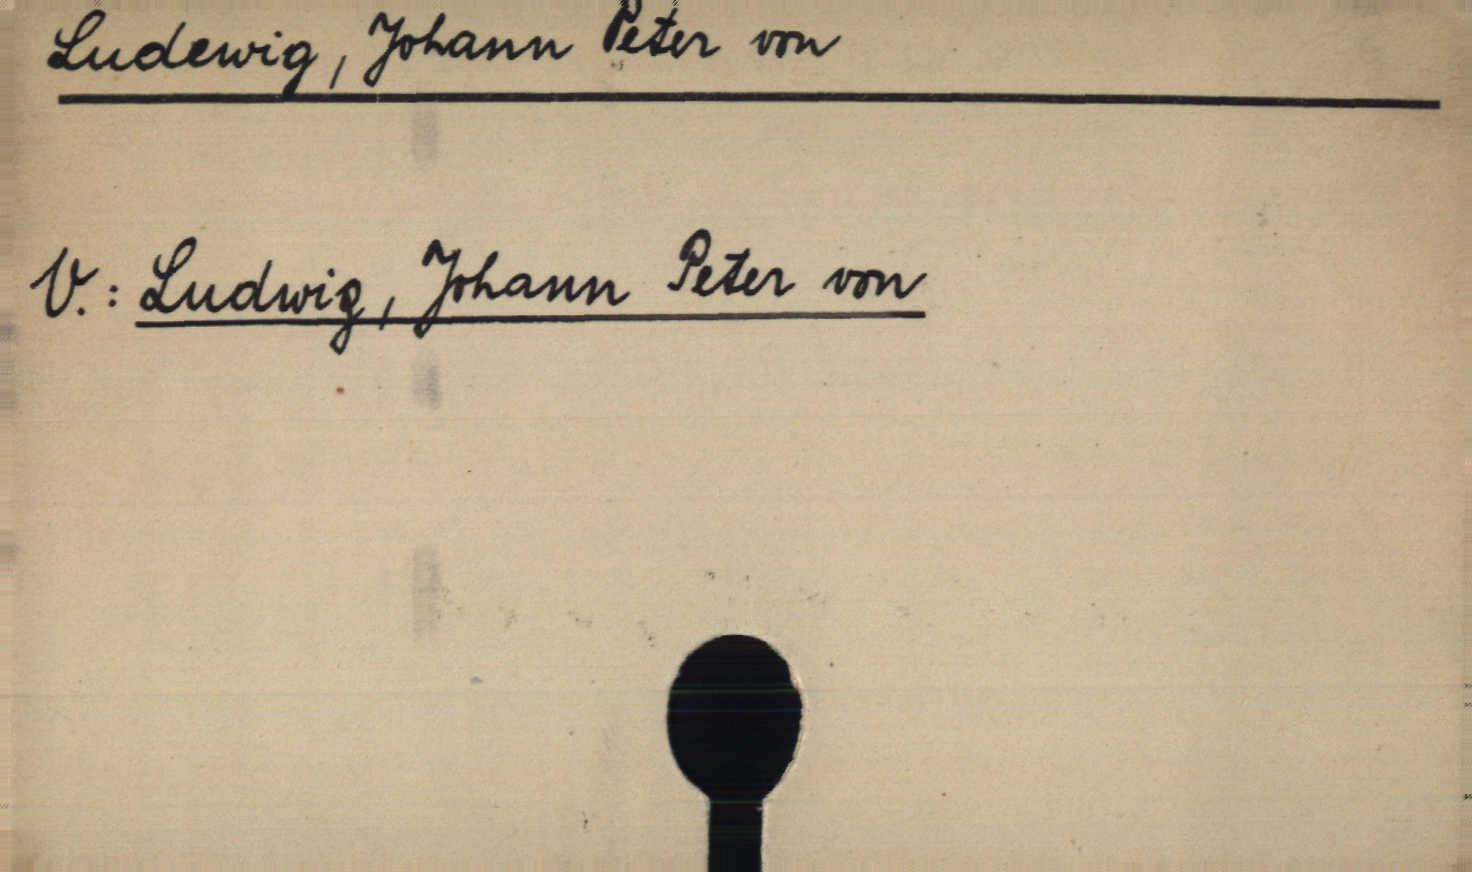 Ludewig, Johann Peter von
V.: Ludwig, Johann Peter von